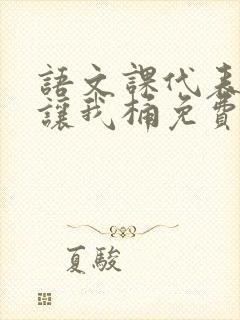 語文課代表
讓我桶免費
夏駿